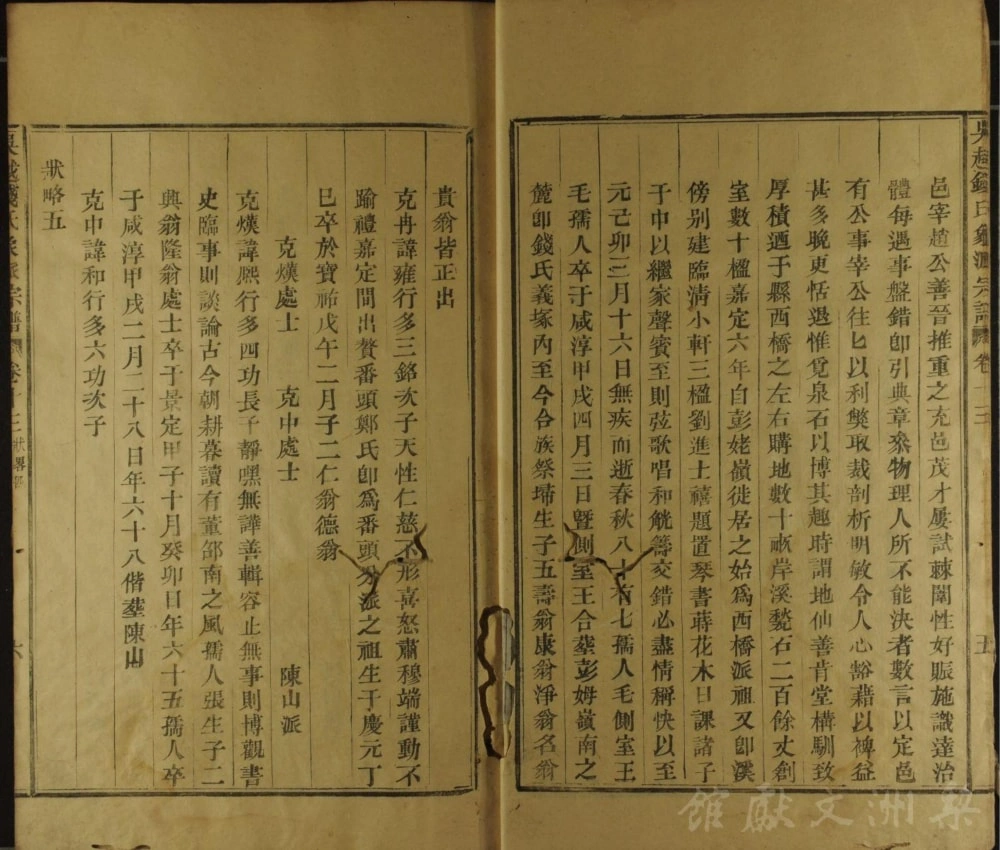 吳越錢氏
宗譜
卷十三
五
邑宰趙公善晉推重之充邑茂才屢試棘闈性好賑施識達治
體每遇事盤錯卽引典章叅物理人所不能決者數言以定邑
有公事宰公往匕以利獘取裁剖析明敏令人心豁藉以裨益
甚多晚更恬退惟覓泉石以博其趣時謂地仙善肯堂構馴致
厚積遒于縣西橋之左右購地數十畝岸溪甃石二百餘丈創
室數十楹嘉定六年自彭姥嶺徙居之始爲西橋派祖又卽溪
傍別建臨淸小軒三楹劉進士禧題置琴書蒔花木日課諸子
于中以繼家聲賓至則弦歌唱和觥籌交錯必盡情稱快以至
元己卯三月十六日無疾而逝春秋八十有七孺人毛側室王
毛孺人卒于咸淳甲戌四月三日曁側室王合塟彭姆嶺南之
麓卽錢氏義塚內至今合族祭埽生子五壽翁康翁淨翁名翁
貴翁皆正出
克冉諱雍行多三銘次子天性仁慈不形喜怒肅穆端謹動不
踰禮嘉定間出贅番頭鄭氏卽爲番頭分派之祖生于慶元丁
巳卒於寶祐戊午二月子二仁翁德翁
克熯處士 克中處士 陳山派
克熯諱熙行多四功長子靜嘿無譁善輯容止無事則博觀書
史臨事則談論古今朝耕暮讀有董邵南之風孺人張生子二
興翁隆翁處士卒于景定甲子十月癸卯日年六十五孺人卒
于咸淳甲戌二月二十八日年六十八偕塟陳山
克中諱和行多六功次子
狀略五
吳越錢氏
宗譜
卷十三
狀畧部
六
梨洲文獻館